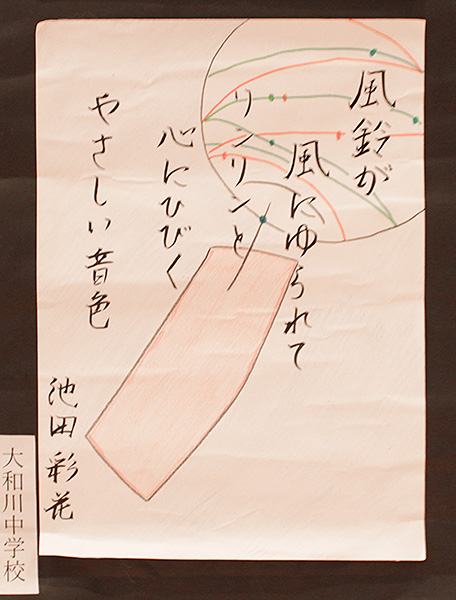 風鈴が
風にゆられて
リンリンと
心にひびく
やさしい音色
池田彩花
大和川中学校